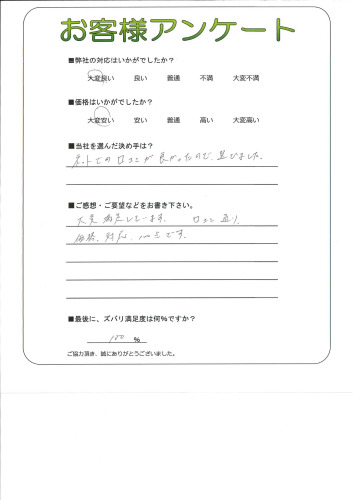 お客様アンケート
■弊社の対応はいかがでしたか?
大変良い 良い 普通 不満 大変不満
■価格はいかがでしたか?
大変安い 安い 普通 高い 大変高い
■当社を選んだ決め手は?
ネットでの口コミが良かったので、選びました。
■ご感想・ご要望などをお書き下さい。
大変満足しています。 口コミ通り、
価格、対応、100点です。
■最後に、ズバリ満足度は何%ですか?
100 %
ご協力頂き、誠にありがとうございました。